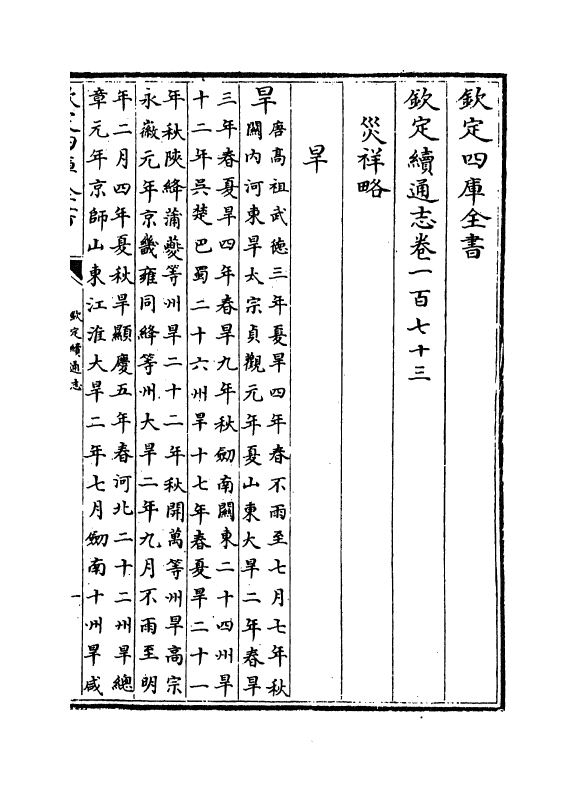 欽定四庫全書
欽定續通志卷一百七十三
災祥略
旱
旱唐高祖武徳三年夏旱四年春不雨至七月七年秋
關内河東旱太宗貞觀元年夏山東大旱二年春旱
三年春夏旱四年春旱九年秋劒南關東二十四州旱
十二年吳楚巴蜀二十六州旱十七年春夏旱二十一
年秋陜絳蒲夔等州旱二十二年秋開萬等州旱高宗
永徽元年京畿雍同絳等州大旱二年九月不雨至明
年二月四年夏秋旱顯慶五年春河北二十二州旱總
章元年京師山東江淮大旱二年七月劒南十州旱咸
欽定四庫全書
欽定續通志
一